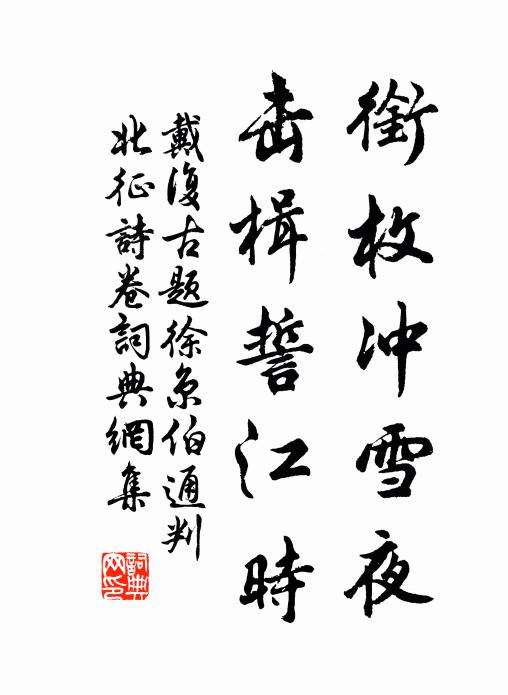 銜枚冲雪夜
击楫誓江時
戴復古題徐京伯通判
北征詩卷詞典網集
詞典
网印